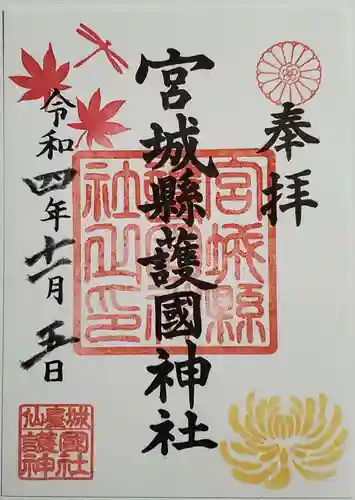 奉拝
宮城縣護國神社
令和四年十一月五日
宮城縣護國神社之印
仙臺城
護國神社